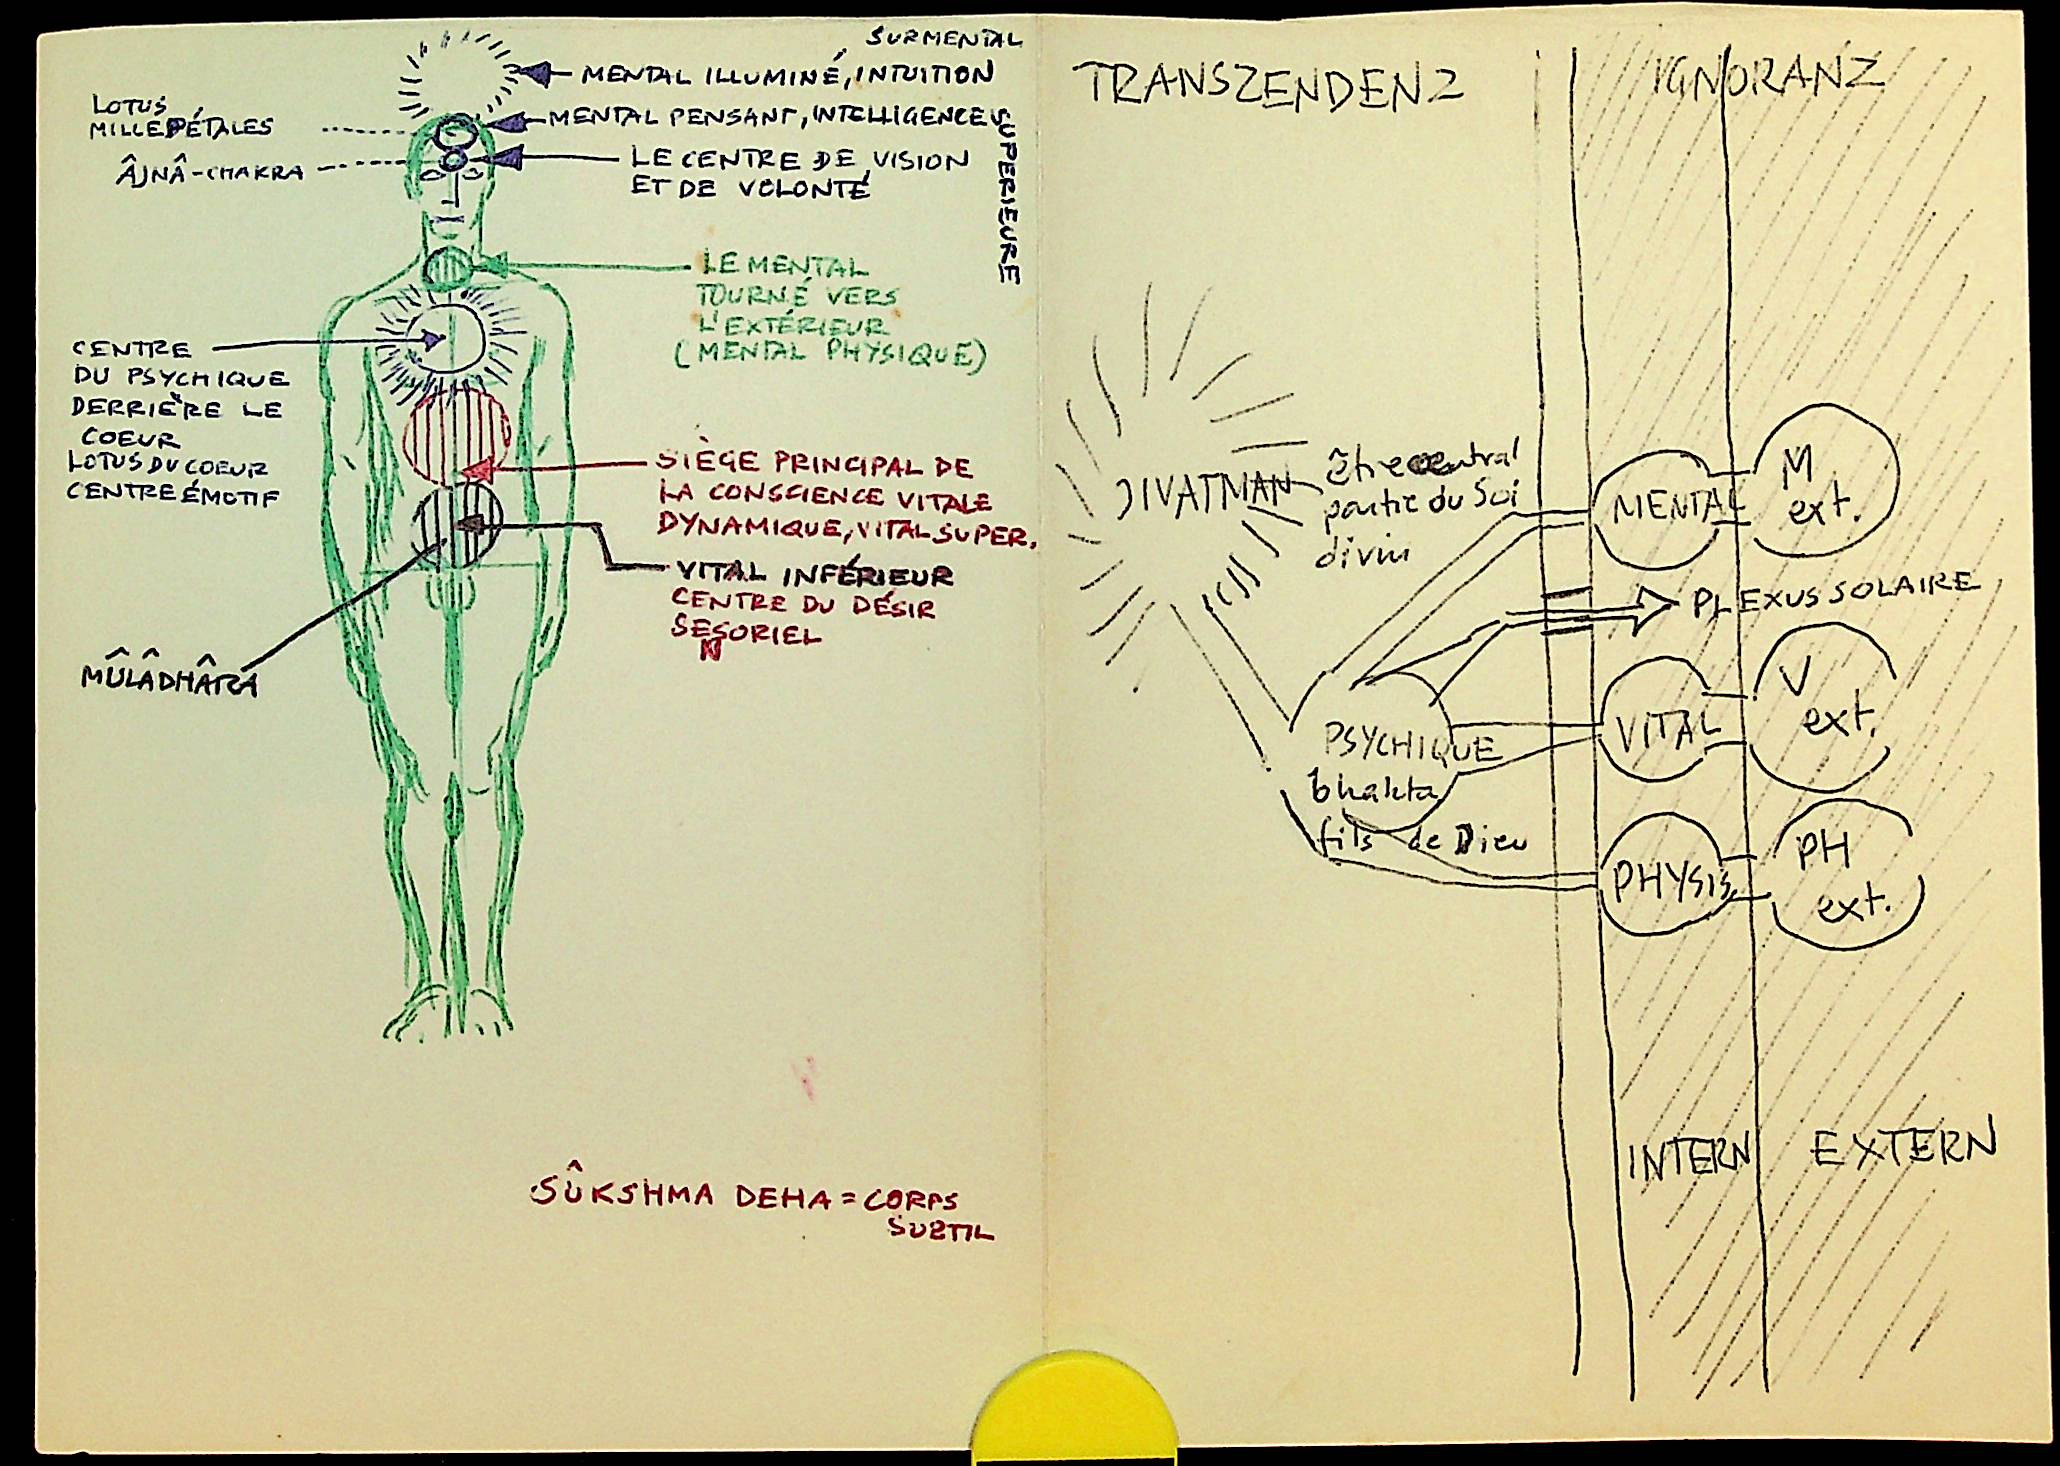 SURMENTAL
MENTAL ILLUMINÉ, INTUITION
MENTAL PENSANT, INTELLIGENCE
SUPERIEURE
LOTUS
MILLEPÉTALES
ÂJNÂ-CHAKRA
LE CENTRE DE VISION
ET DE VOLONTÉ
LE MENTAL
TOURNÉ VERS
L'EXTÉRIEUR
(MENTAL PHYSIQUE)
CENTRE
DU PSYCHIQUE
DERRIÈRE LE
COEUR
LOTUS DU COEUR
CENTRE ÉMOTIF
SIÈGE PRINCIPAL DE
LA CONSCIENCE VITALE
DYNAMIQUE, VITAL SUPER.
VITAL INFÉRIEUR
CENTRE DU DÉSIR
SESORIEL
N
MÛLÂDHÂRA
SÛKSHMA DEHA = CORPS
SUBTIL
TRANSZENDENZ
IGNORANZ
JIVATMAN
être central
partie du Soi
divin
MENTAL
M
ext.
PLEXUS SOLAIRE
PSYCHIQUE
bhakta
fils de Dieu
VITAL
V
ext.
PHYSIS
PH
ext.
INTERN
EXTERN